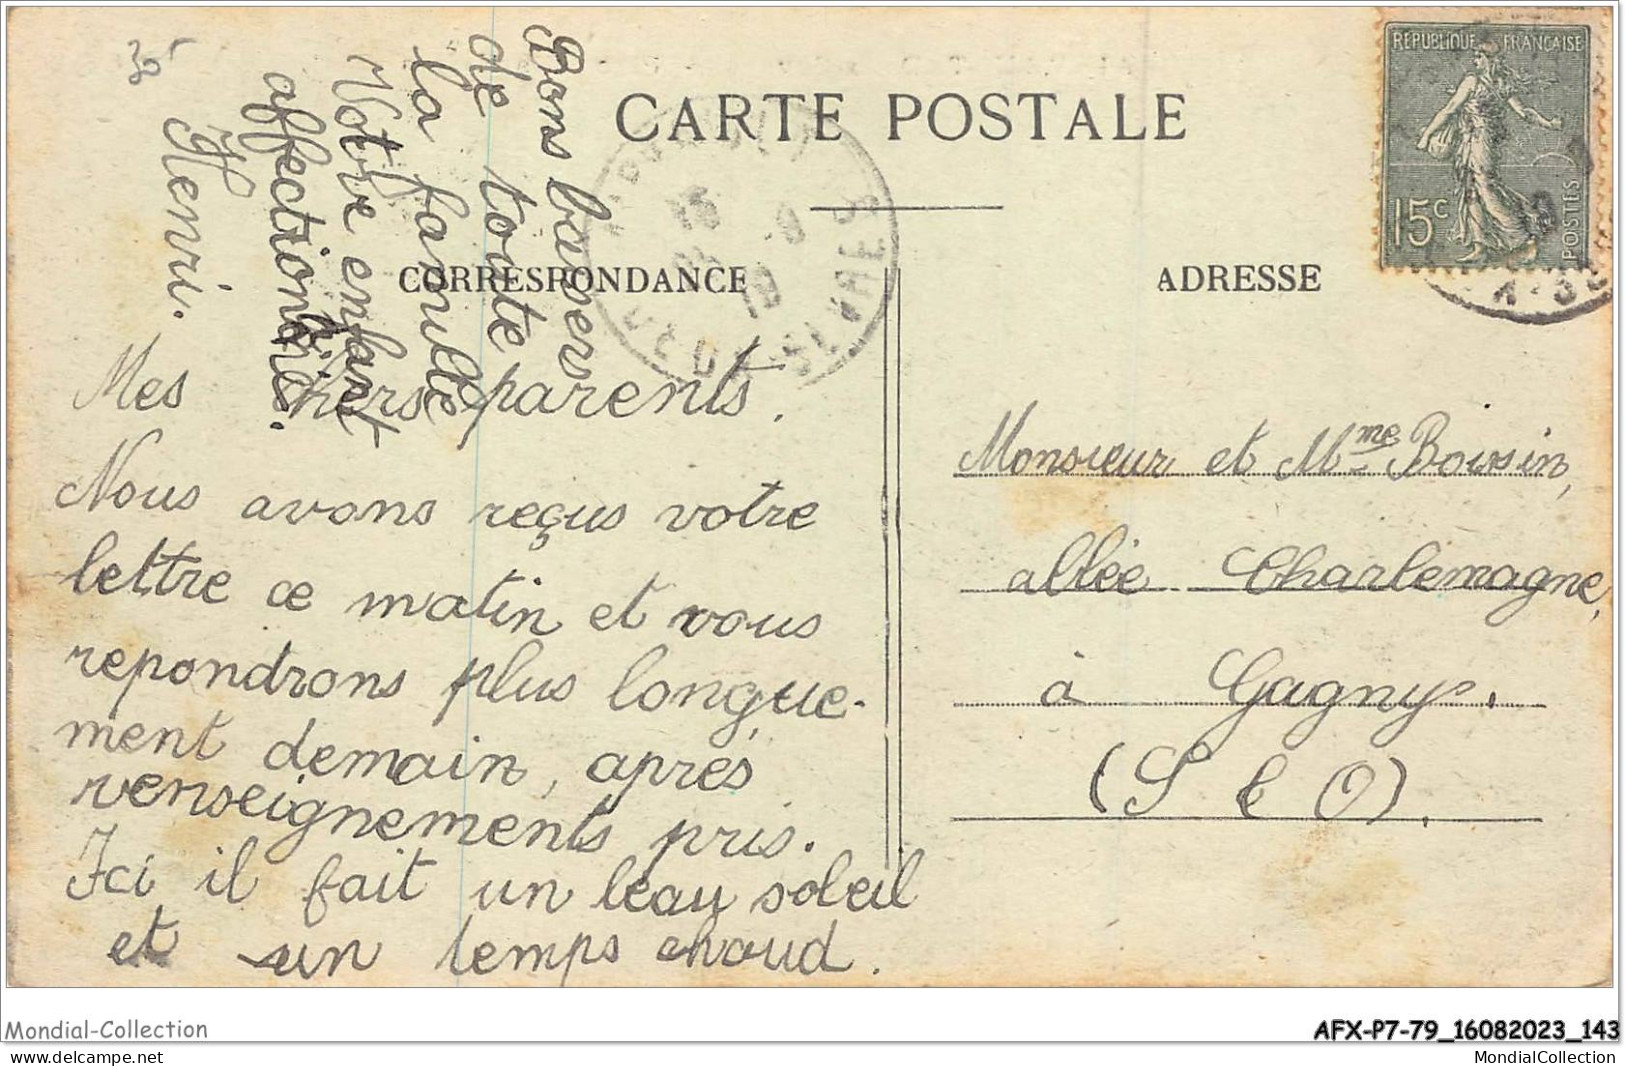 CARTE POSTALE
REPUBLIQUE FRANCAISE
15c
POSTES
CORRESPONDANCE
ADRESSE
DEUX-SEVRES
Mes chers parents.
Nous avons reçus votre
lettre ce matin et vous
repondrons plus longue-
ment demain, après
renseignements pris.
Ici il fait un beau soleil
et un temps chaud.
Bons baisers
de toute
la famille
Votre enfant
affectionné.
Henri.
Monsieur et Mme Boursin,
allée Charlemagne,
à Gagny.
(S et O).
Mondial-Collection
AFX-P7-79_16082023_143
https://www.delcampe.net
MondialCollection